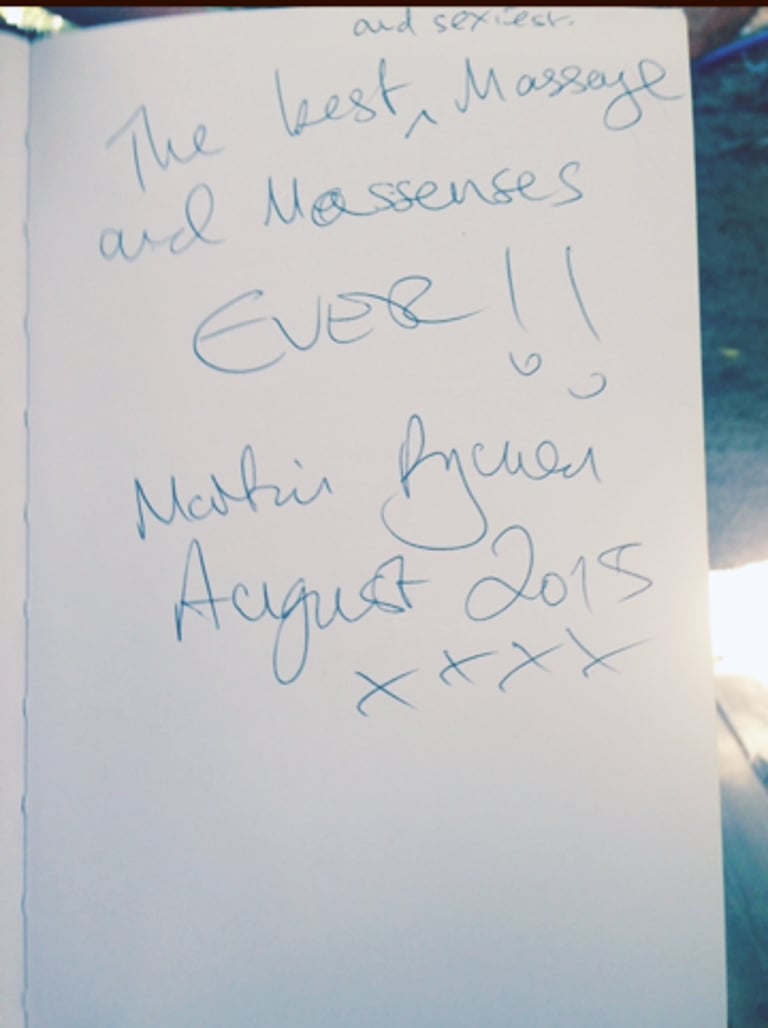 and sexiest.
The best ^ Massage
and Massenses
EVER!!
Martin
August 2015
xxxx